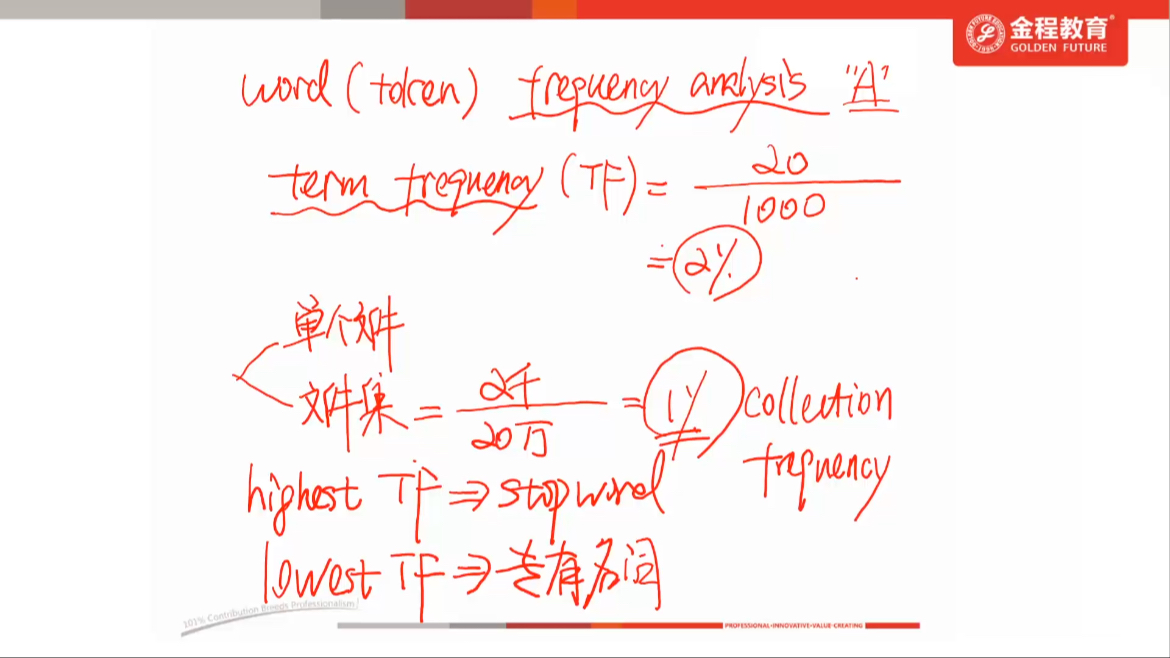 金程教育
GOLDEN FUTURE
word (token) frequency analysis "A"
term frequency (TF) = 20 / 1000
= 2%
单个文件
文件集 = 2千 / 20万 = 1% collection
frequency
highest TF ⇒ stop word
lowest TF ⇒ 专有名词
101% Contribution Breeds Professionalism
PROFESSIONAL·INNOVATIVE·VALUE-CREATING